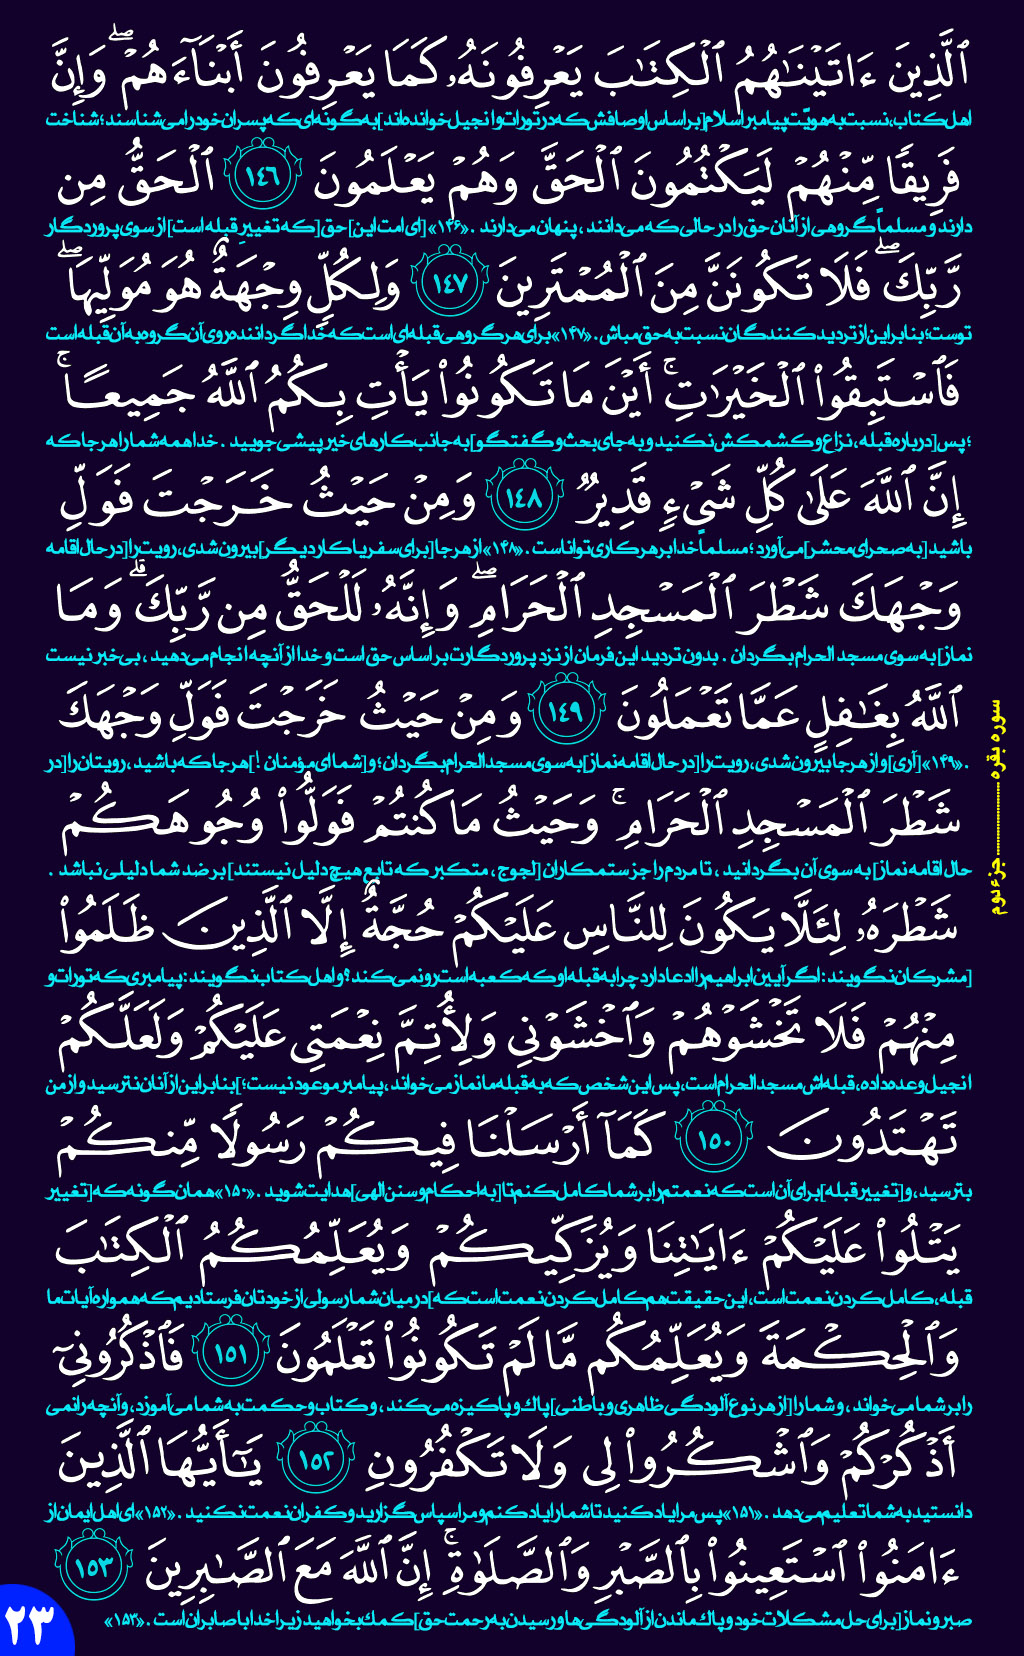 ٱلَّذِينَ ءَاتَيۡنَٰهُمُ ٱلۡكِتَٰبَ يَعۡرِفُونَهُۥ كَمَا يَعۡرِفُونَ أَبۡنَآءَهُمۡۖ وَإِنَّ
اهل کتاب، نسبت به هویّت پیامبر اسلام [بر اساس اوصافش که در تورات و انجیل خوانده‌اند] به گونه‌ای که پسران خود را می‌شناسند؛ شناخت
فَرِيقٗا مِّنۡهُمۡ لَيَكۡتُمُونَ ٱلۡحَقَّ وَهُمۡ يَعۡلَمُونَ ١٤٦ ٱلۡحَقُّ مِن
دارند و مسلماً گروهی از آنان حق را در حالی که می‌دانند، پنهان می‌دارند. «۱۴۶» [ای امت این] حق [که تغییرِ قبله است] از سوی پروردگار
رَّبِّكَۖ فَلَا تَكُونَنَّ مِنَ ٱلۡمُمۡتَرِينَ ١٤٧ وَلِكُلّٖ وِجۡهَةٌ هُوَ مُوَلِّيهَاۖ
توست؛ بنابراین از تردیدکنندگان نسبت به حق مباش. «۱۴۷» برای هر گروهی قبله‌ای است که خدا گرداننده روی آن گروه به آن قبله است
فَٱسۡتَبِقُواْ ٱلۡخَيۡرَٰتِۚ أَيۡنَ مَا تَكُونُواْ يَأۡتِ بِكُمُ ٱللَّهُ جَمِيعًاۚ
؛ پس [درباره قبله، نزاع و کشمکش نکنید و به جای بحث و گفتگو] به جانب کارهای خیر پیشی جویید. خدا همه شما را هر جا که
إِنَّ ٱللَّهَ عَلَىٰ كُلِّ شَيۡءٖ قَدِيرٞ ١٤٨ وَمِنۡ حَيۡثُ خَرَجۡتَ فَوَلِّ
باشید [به صحرای محشر] می‌آورد؛ مسلماً خدا بر هر کاری تواناست. «۱۴۸» از هر جا [برای سفر یا کار دیگر] بیرون شدی، رویت را [در حال اقامه
وَجۡهَكَ شَطۡرَ ٱلۡمَسۡجِدِ ٱلۡحَرَامِۖ وَإِنَّهُۥ لَلۡحَقُّ مِن رَّبِّكَۗ وَمَا
نماز] به سوی مسجد الحرام بگردان. بدون تردید این فرمان از نزد پروردگارت بر اساس حق است و خدا از آنچه انجام می‌دهید، بی‌خبر نیست
ٱللَّهُ بِغَٰفِلٍ عَمَّا تَعۡمَلُونَ ١٤٩ وَمِنۡ حَيۡثُ خَرَجۡتَ فَوَلِّ وَجۡهَكَ
. «۱۴۹» [آری] و از هر جا بیرون شدی، رویت را [در حال اقامه نماز] به سوی مسجد الحرام بگردان؛ و [شما ای مؤمنان!] هر جا که باشید، رویتان را [در
شَطۡرَ ٱلۡمَسۡجِدِ ٱلۡحَرَامِۚ وَحَيۡثُ مَا كُنتُمۡ فَوَلُّواْ وُجُوهَكُمۡ
حال اقامه نماز] به سوی آن بگردانید، تا مردم را جز ستمکاران [لجوج، متکبر که تابع هیچ دلیل نیستند] بر ضد شما دلیلی نباشد.
شَطۡرَهُۥ لِئَلَّا يَكُونَ لِلنَّاسِ عَلَيۡكُمۡ حُجَّةٌ إِلَّا ٱلَّذِينَ ظَلَمُواْ
[مشرکان نگویند: اگر آیین ابراهیم را ادعا دارد چرا به قبله او که کعبه است رو نمی‌کند؟ و اهل کتاب نگویند: پیامبری که تورات و
مِنۡهُمۡ فَلَا تَخۡشَوۡهُمۡ وَٱخۡشَوۡنِي وَلِأُتِمَّ نِعۡمَتِي عَلَيۡكُمۡ وَلَعَلَّكُمۡ
انجیل وعده داده، قبله‌اش مسجد الحرام است، پس این شخص که به قبله ما نماز می‌خواند، پیامبر موعود نیست؛] بنابراین از آنان نترسید و از من
تَهۡتَدُونَ ١٥٠ كَمَآ أَرۡسَلۡنَا فِيكُمۡ رَسُولٗا مِّنكُمۡ
بترسید، و [تغییر قبله] برای آن است که نعمتم را بر شما کامل کنم تا [به احکام و سنن الهی] هدایت شوید. «۱۵۰» همان گونه که [تغییر
يَتۡلُواْ عَلَيۡكُمۡ ءَايَٰتِنَا وَيُزَكِّيكُمۡ وَيُعَلِّمُكُمُ ٱلۡكِتَٰبَ
قبله، کامل کردن نعمت است، این حقیقت هم کامل کردن نعمت است که] در میان شما رسولی از خودتان فرستادیم که همواره آیات ما
وَٱلۡحِكۡمَةَ وَيُعَلِّمُكُم مَّا لَمۡ تَكُونُواْ تَعۡلَمُونَ ١٥١ فَٱذۡكُرُونِيٓ
را بر شما می‌خواند، و شما را [از هر نوع آلودگی ظاهری و باطنی] پاك و پاکیزه می‌کند، و کتاب و حکمت به شما می‌آموزد، و آنچه را نمی
أَذۡكُرۡكُمۡ وَٱشۡكُرُواْ لِي وَلَا تَكۡفُرُونِ ١٥٢ يَٰٓأَيُّهَا ٱلَّذِينَ
دانستید به شما تعلیم می‌دهد. «۱۵۱» پس مرا یاد کنید تا شما را یاد کنم و مرا سپاس گزارید و کفران نعمت نکنید. «۱۵۲» ای اهل ایمان از
ءَامَنُواْ ٱسۡتَعِينُواْ بِٱلصَّبۡرِ وَٱلصَّلَوٰةِۚ إِنَّ ٱللَّهَ مَعَ ٱلصَّٰبِرِينَ ١٥٣
صبر و نماز [برای حل مشکلات خود و پاك ماندن از آلودگی‌ها و رسیدن به رحمت حق] کمك بخواهید زیرا خدا با صابران است. «۱۵۳»
سوره بقره ........................ جزء دوم
۲۳